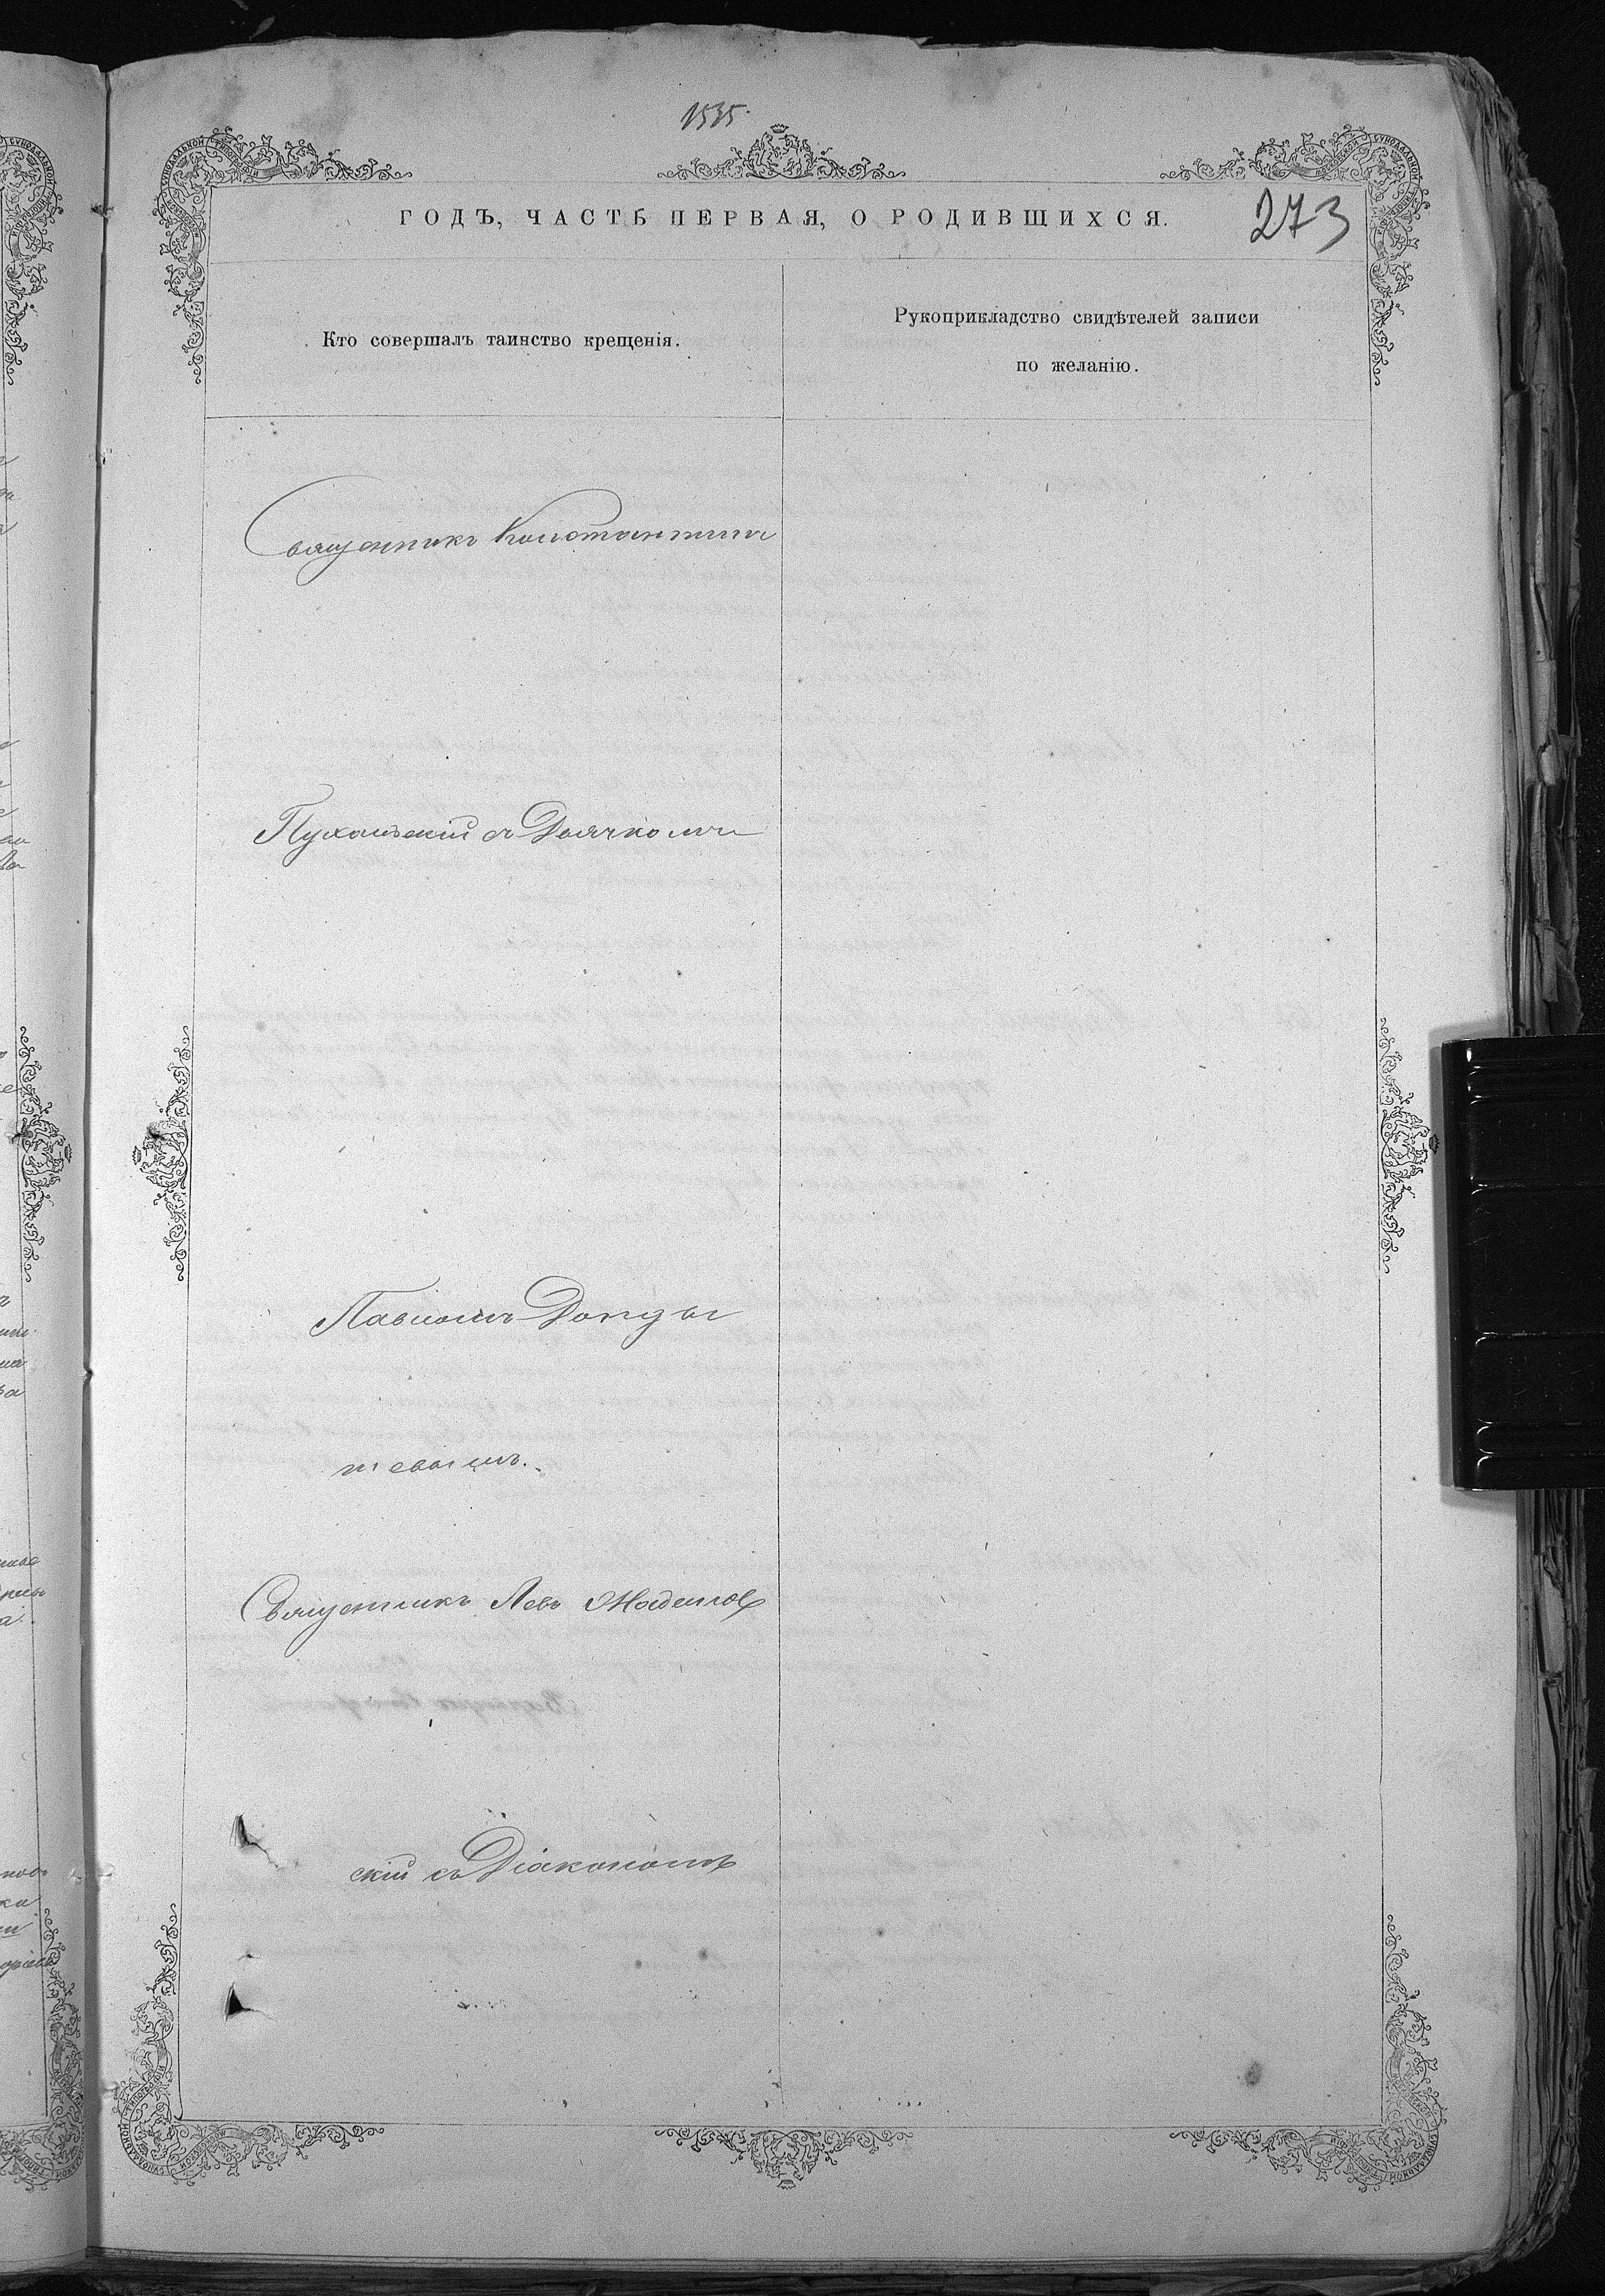 1535.
ГОДЪ, ЧАСТЬ ПЕРВАЯ, О РОДИВШИХСЯ.
273
Кто совершалъ таинство крещенія.
Рукоприкладство свидѣтелей записи
по желанію.
Священникъ Константинъ
Пухальскій съ Дьячкомъ
Павломъ
Священникъ Левъ
скій съ Діакономъ